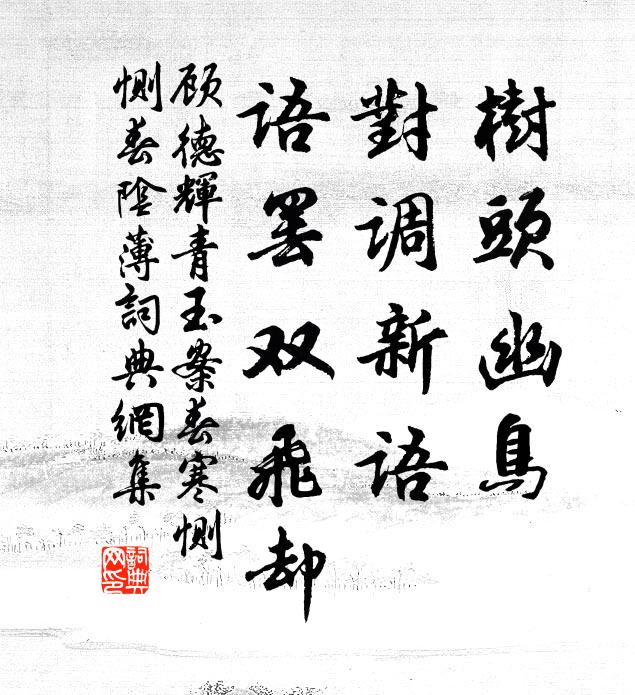 樹頭幽鳥
對调新语
语罢双飛却
顾德輝青玉案春寒惻
惻春陰薄詞典網集
詞典网印